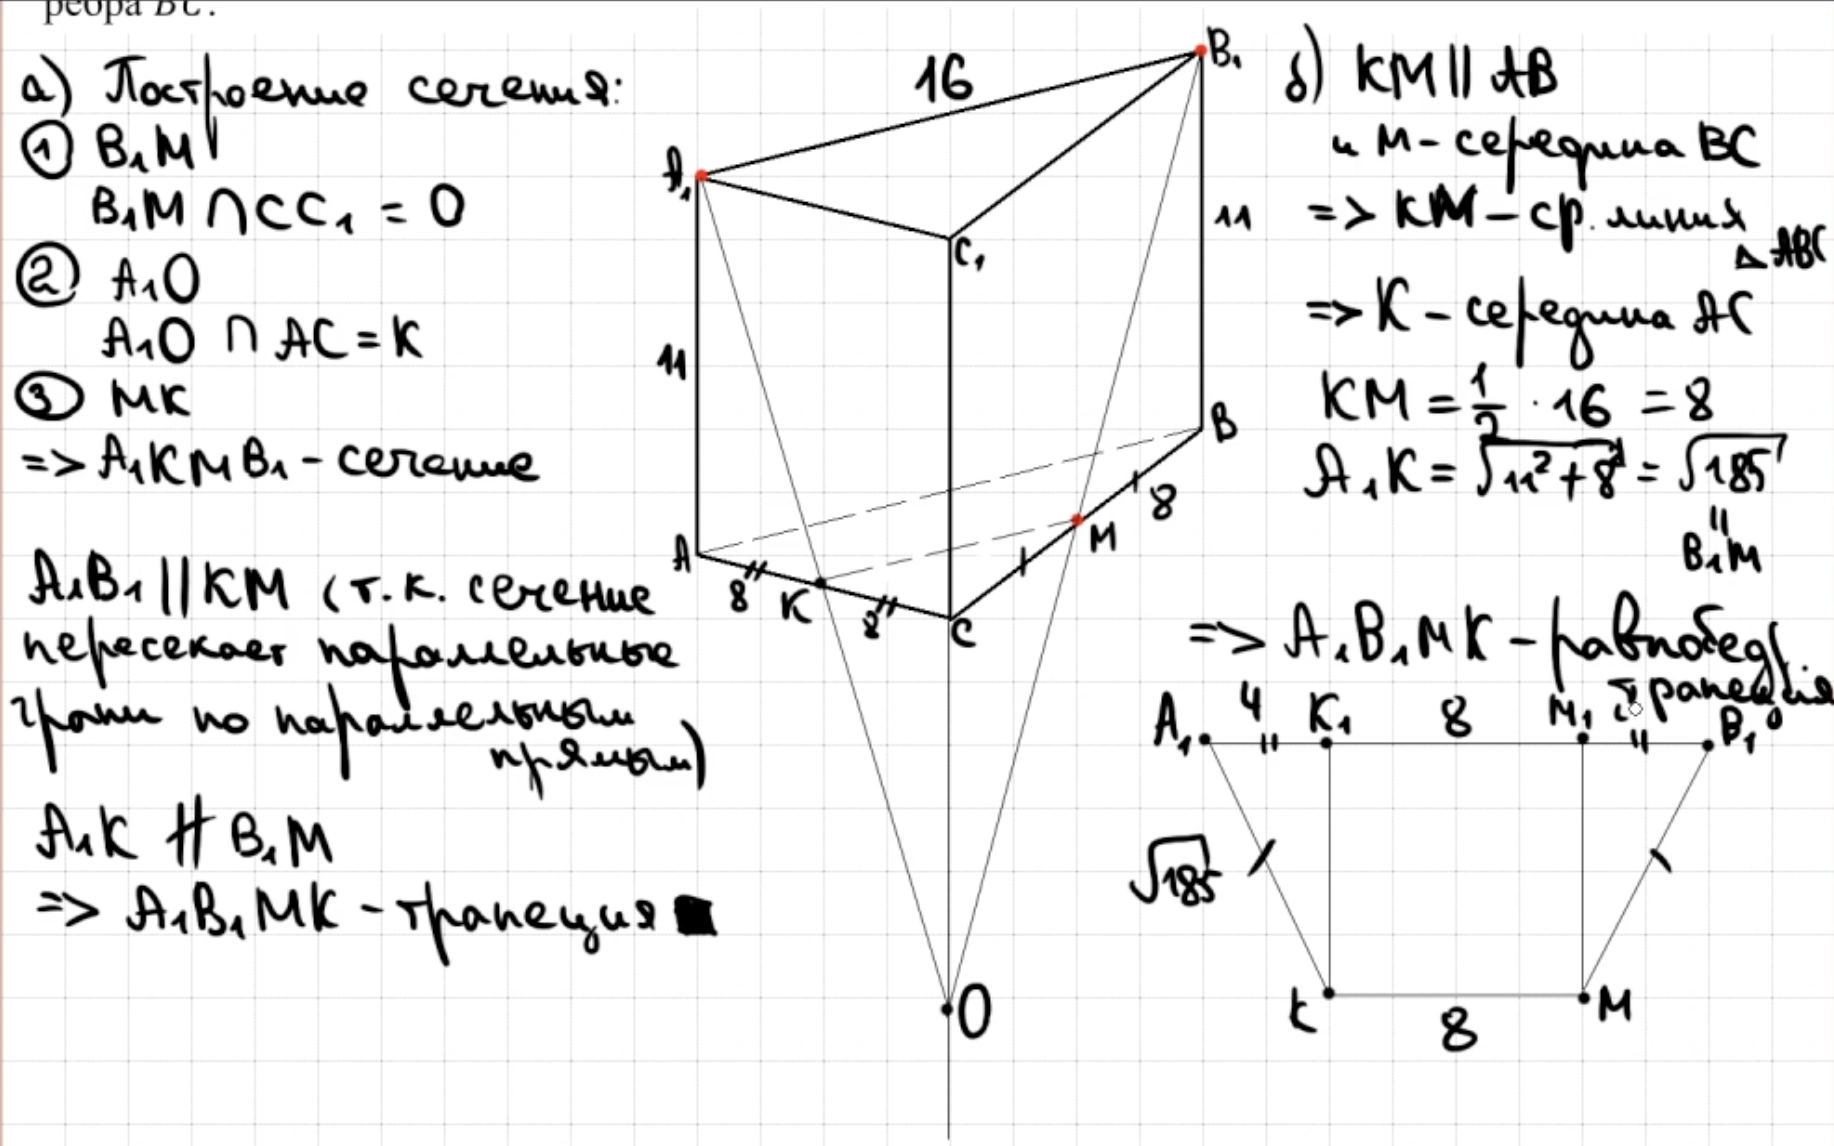 ребра BC.
а) Построение сечения:
① B₁M
B₁M ∩ CC₁ = O
② A₁O
A₁O ∩ AC = K
③ MK
=> A₁KMB₁ - сечение
A₁B₁ || KM (т.к. сечение
пересекает параллельные
грани по параллельным
прямым)
A₁K ∦ B₁M
=> A₁B₁MK - трапеция ■
16
B₁
A₁
C₁
11
11
B
A
8
K
8
C
M
8
O
б) KM || AB
и M - середина BC
=> KM - ср. линия
△ ABC
=> K - середина AC
KM = 1/2 · 16 = 8
A₁K = √11² + 8² = √185
||
B₁M
=> A₁B₁MK - равнобедр
трапеция
A₁ 4 K₁ 8 M₁ B₁
√185
K 8 M